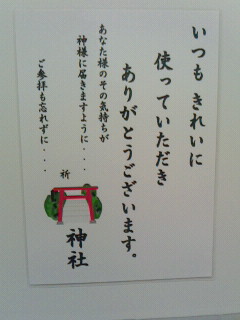 いつもきれいに
使っていただき
ありがとうございます。
あなた様のその気持ちが
神様に届きますように・・・
ご参拝も忘れずに・・・
祈
神社